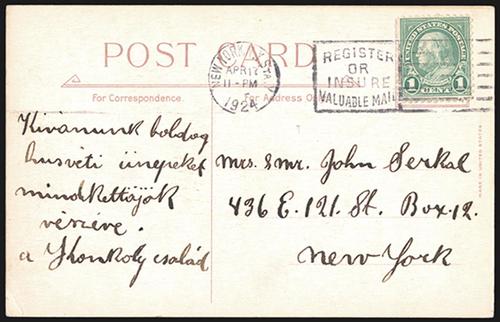 POST CARD
NEW YORK, N.Y. STA.
APR 17
11-PM
1924
REGISTER
OR
INSURE
VALUABLE MAIL
UNITED STATES POSTAGE
1 CENT 1
For Correspondence.
For Address Only
MADE IN UNITED STATES
Kivánunk boldog
husvéti ünepeket
mindkettöjök
részére.
a Thonkoly család
Mrs. & Mr. John Serkal
436 E. 121. St. Box. 12.
New York